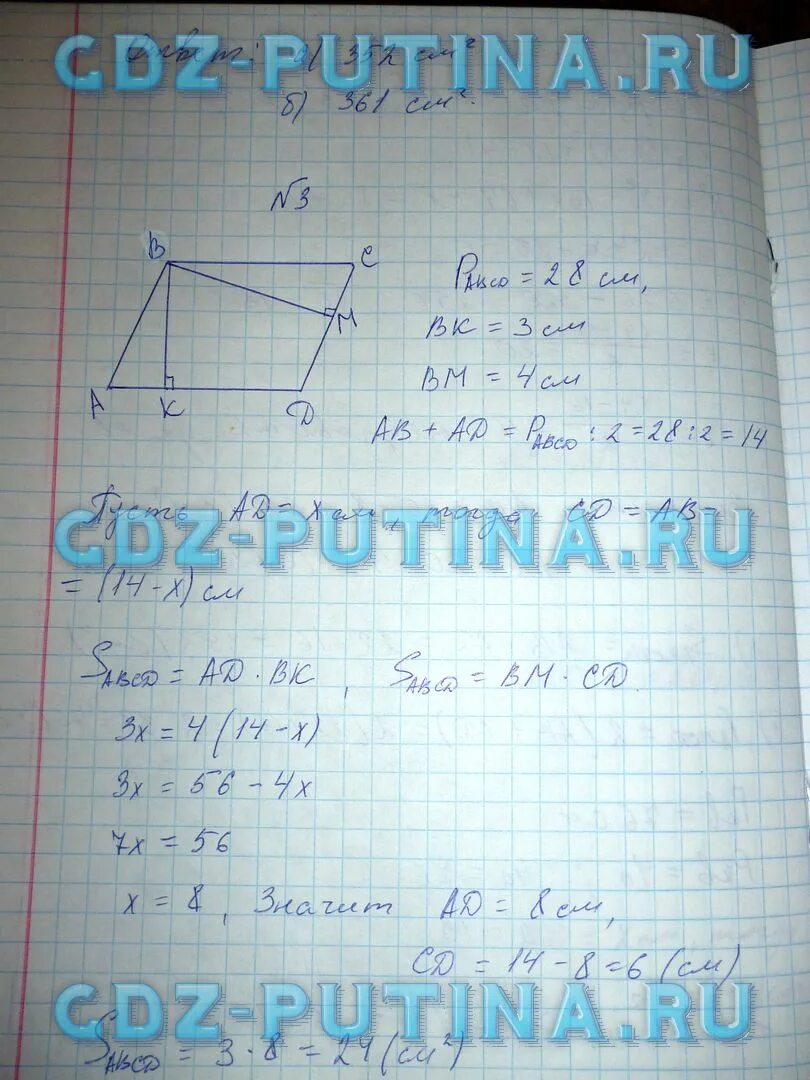 GDZ-PUTINA.RU
Ответ: а) 352 см²
б) 361 см².
N3
B
C
M
A
K
D
P ABCD = 28 см,
BK = 3 см
BM = 4 см
AB + AD = P ABCD : 2 = 28 : 2 = 14
Пусть AD = x см, тогда CD = AB =
GDZ-PUTINA.RU
= (14 - x) см
S ABCD = AD · BK , S ABCD = BM · CD.
3x = 4 (14 - x)
3x = 56 - 4x
7x = 56
x = 8 , Значит AD = 8 см,
CD = 14 - 8 = 6 (см)
GDZ-PUTINA.RU
S ABCD = 3 · 8 = 24 (см²)